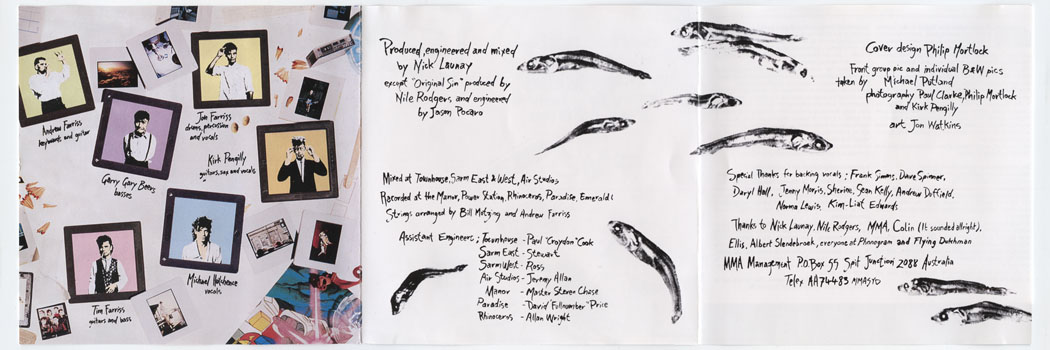 Andrew Farriss
keyboards and guitar
Jon Farriss
drums, percussion
and vocals
Garry Gary Beers
basses
Kirk Pengilly
guitars, sax and vocals
Michael Hutchence
vocals
Tim Farriss
guitars and bass
Produced, engineered and mixed
by Nick Launay
except "Original Sin" produced by
Nile Rodgers and engineered
by Jason Pocaro
Mixed at Townhouse, Sarm East & West, Air Studios
Recorded at the Manor, Power Station, Rhinoceros, Paradise, Emerald C
Strings arranged by Bill Motzing and Andrew Farriss
Assistant Engineers; Townhouse - Paul 'Croydon' Cook
Sarm East - Stewart
Sarm West - Ross
Air Studios - Jeremy Allan
Manor - Master Steve Chase
Paradise - David 'Fullnumber' Price
Rhinoceros - Allan Wright
Cover design Philip Mortlock
Front group pic and individual B&W pics
taken by Michael Putland
photography Paul Clarke, Philip Mortlock
and Kirk Pengilly
art Jon Watkins
Special Thanks for backing vocals; Frank Simms, Dave Spinner,
Daryl Hall, Jenny Morris, Sherine, Sean Kelly, Andrew Duffield,
Norma Lewis, Kim-Liat Edwards
Thanks to Nick Launay, Nile Rodgers, MMA, Colin (It sounded allright),
Ellis, Albert Slendebroek, everyone at Phonogram and Flying Dutchman
MMA Management P.O. Box 55 Spit Junction 2088 Australia
Telex AA74483 MMASYD